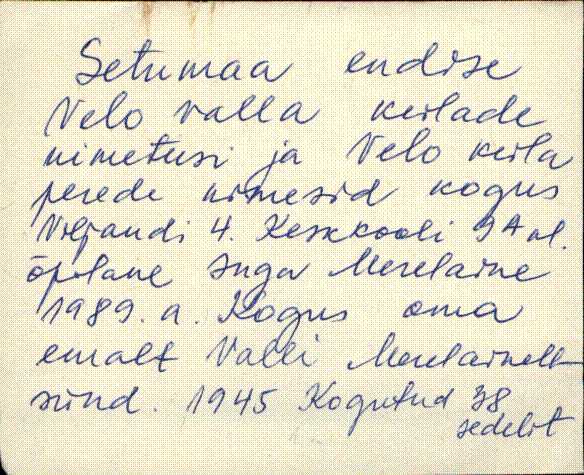 Setumaa endise
Velo valla külade
nimetusi ja Velo küla
perede nimesid kogus
Viljandi 4. Keskkooli 9A kl.
õpilane Inga Merelaine
1989. a. Kogus oma
emalt Valli Merelainelt
sünd. 1945 Kogutud 38
sedelit